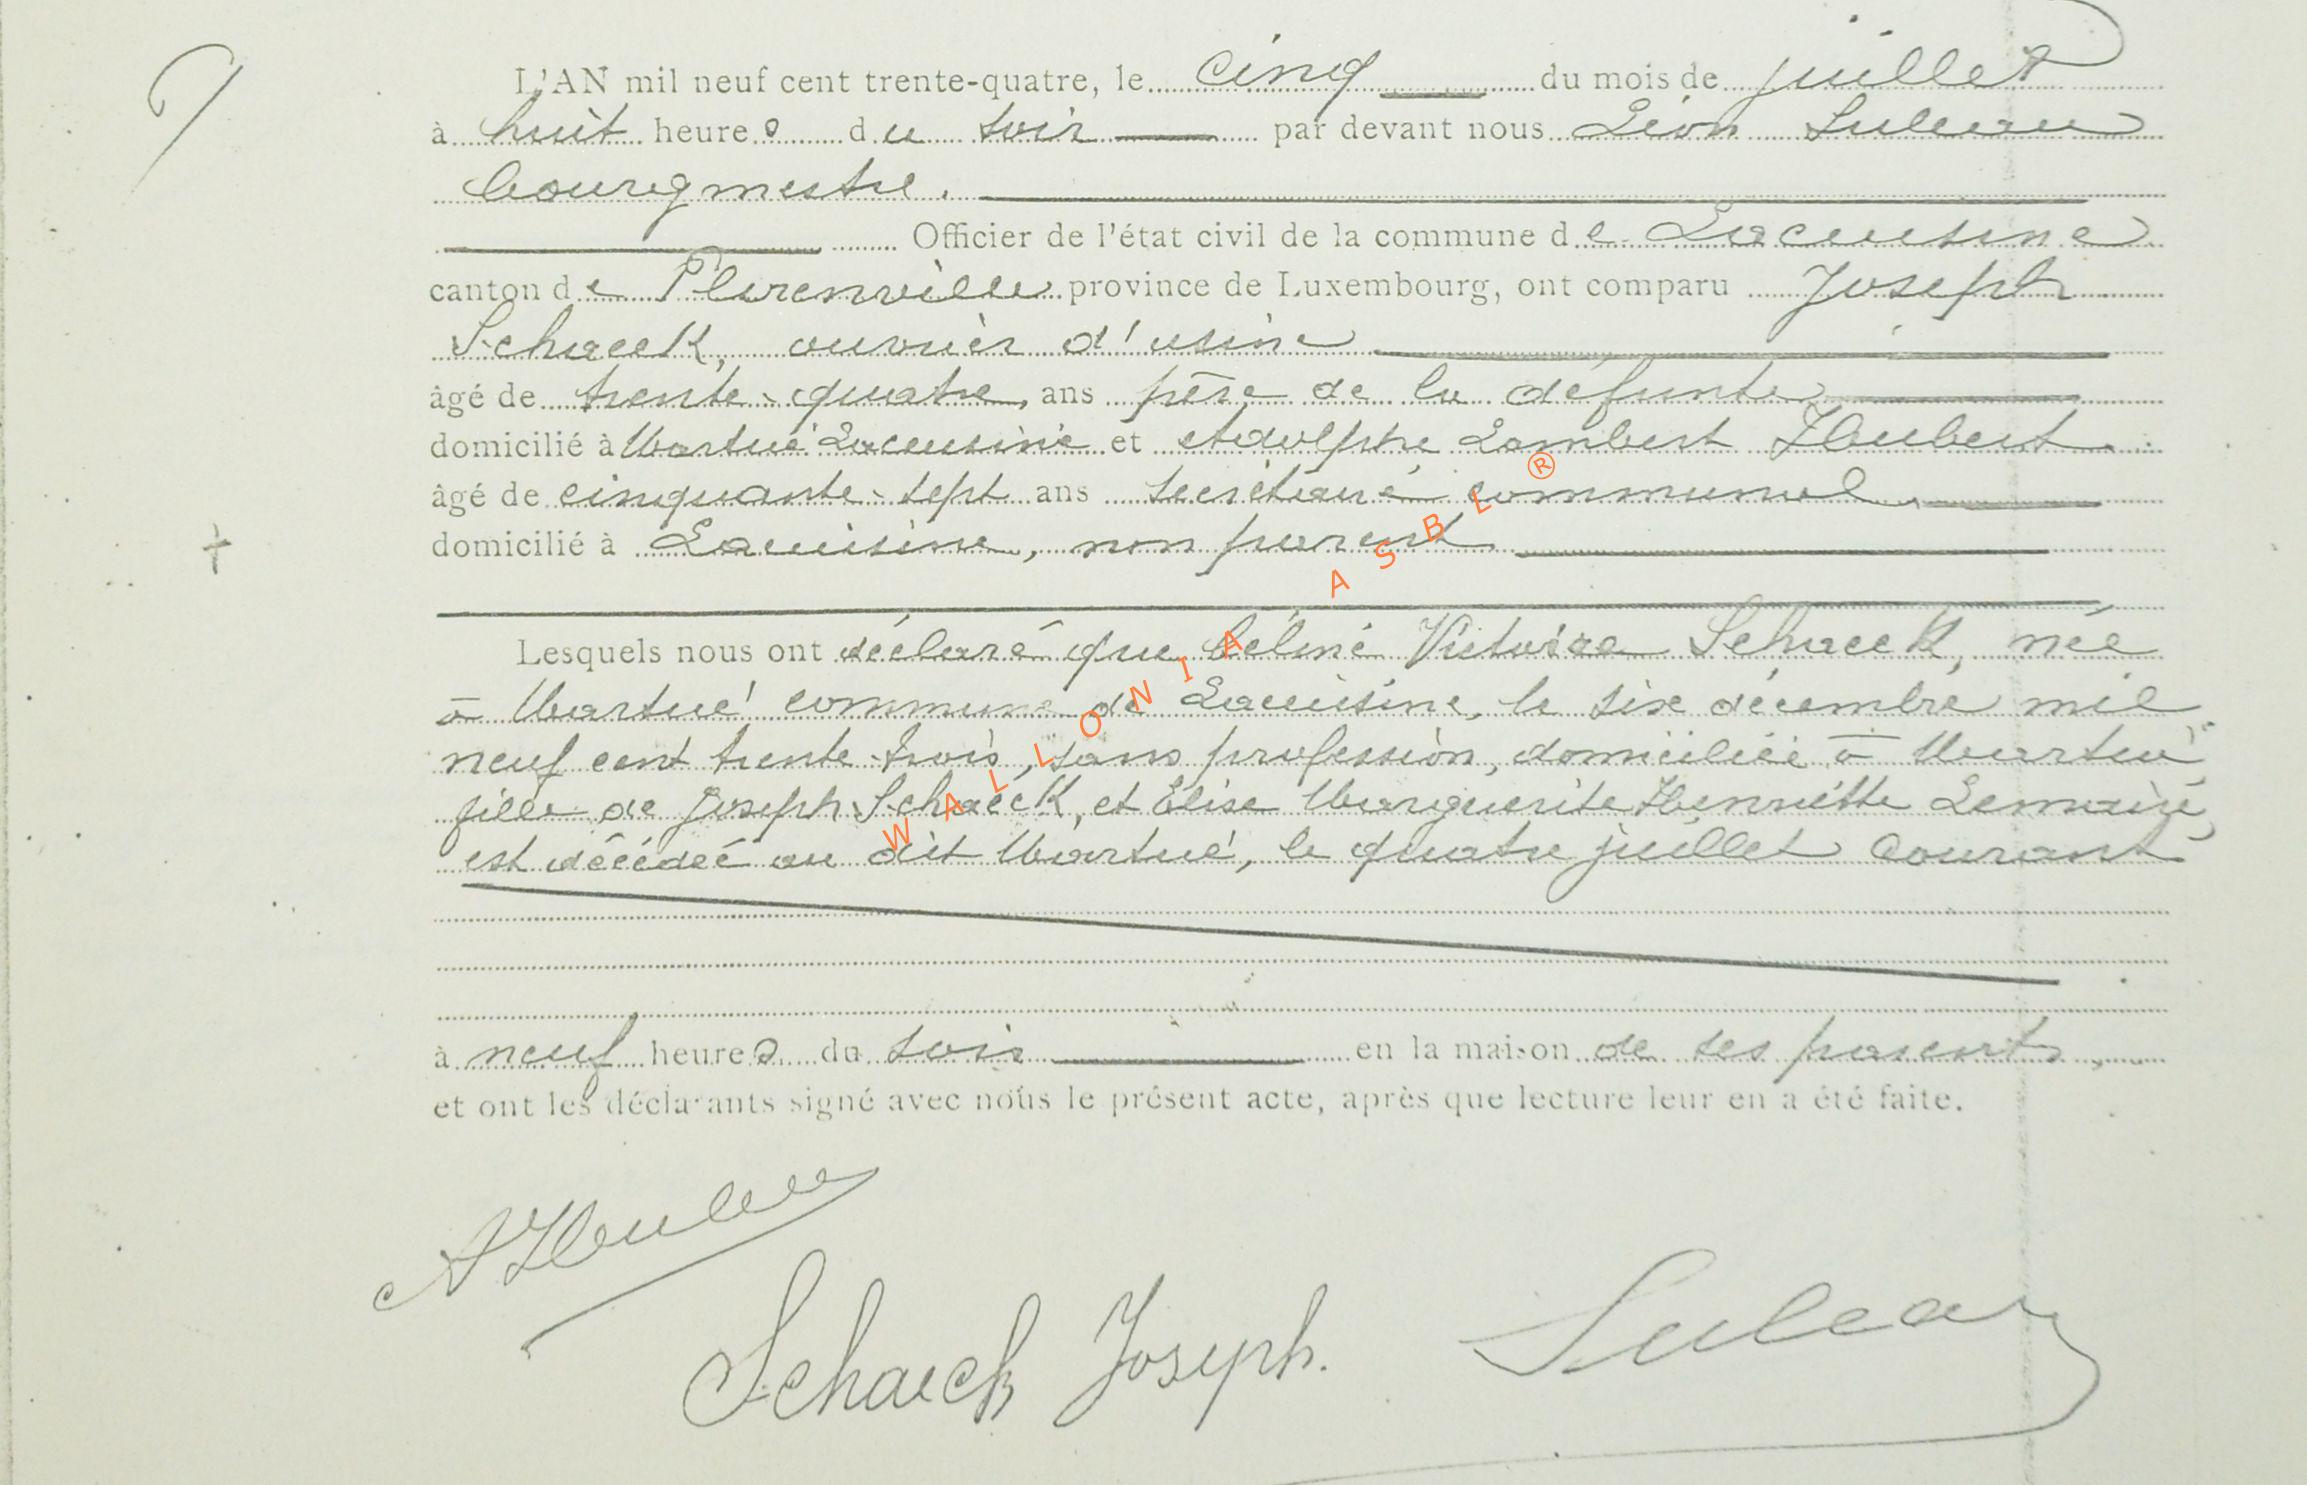 L'AN mil neuf cent trente-quatre, le cinq du mois de juillet
à huit heures du soir par devant nous Léon Suleau
bourgmestre.
Officier de l'état civil de la commune de Lacuisine
canton de Florenville province de Luxembourg, ont comparu Joseph
Schaeck, ouvrier d'usine
âgé de trente-quatre, ans père de la défunte
domicilié à Martué Lacuisine et Adolphe Lambert Hubert
âgé de cinquante-sept ans secrétaire communal,
domicilié à Lacuisine, non parent
Lesquels nous ont déclaré que Céline Victoire Schaeck, née
à Martué commune de Lacuisine, le six décembre mil
neuf cent trente-trois, sans profession, domiciliée à Martué
fille de Joseph Schaeck, et Elise Marguerite Henriette Lemaire,
est décédée au dit Martué, le quatre juillet courant
à neuf heures du soir en la maison de ses parents,
et ont les déclarants signé avec nous le présent acte, après que lecture leur en a été faite.
Schaeck Joseph. Suleau
WALLONIA ASBL ®